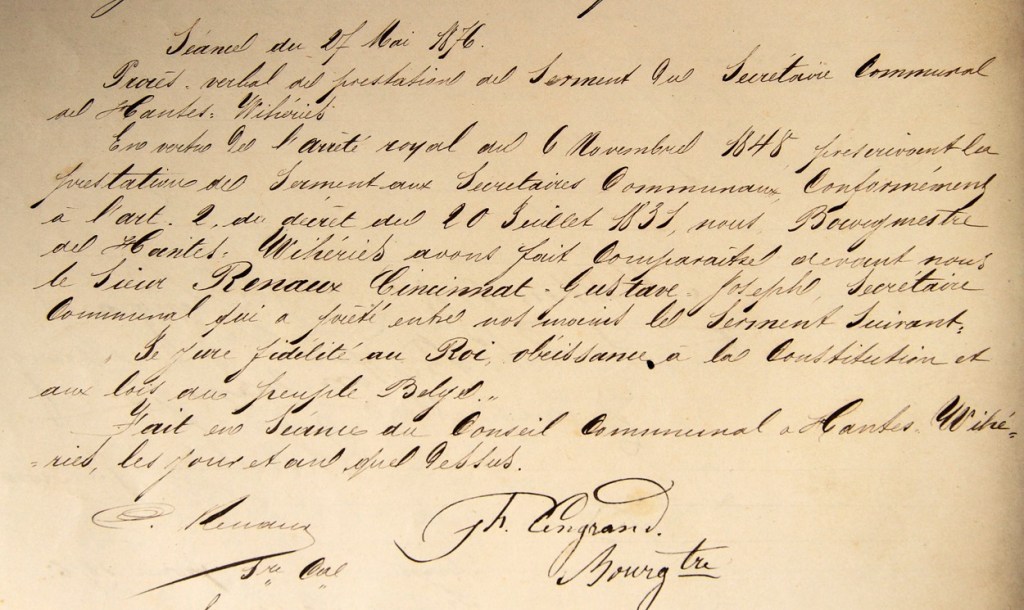 Séance du 27 Mai 1876.
Procès-verbal de prestation de Serment du Secrétaire Communal
de Hantes-Wihéries
En vertu de l'arrêté royal du 6 Novembre 1848, prescrivant la
prestation de Serment aux Secrétaires Communaux, Conformément
à l'art. 2, du décret du 20 Juillet 1831, nous, Bourgmestre
de Hantes-Wihéries avons fait Comparaître devant nous
le Sieur Renaux Cincinnat-Gustave-Joseph, Secrétaire
Communal qui a prêté entre nos mains le Serment Suivant:
„Je jure fidélité au Roi, obéissance à la Constitution et
aux lois du peuple Belge.„
Fait en Séance du Conseil Communal à Hantes-Wihé=
=ries, les jour et an que dessus.
C. Renaux
Th. Lengrand.
Sre Cal
Bourgtre